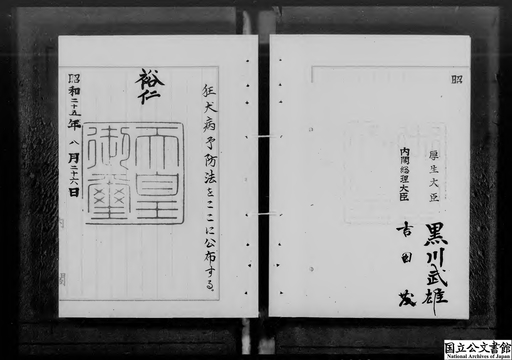 狂犬病予防法をここに公布する。
裕仁
天皇御璽
昭和二十五年八月二十六日
昭
厚生大臣 黒川武雄
内閣総理大臣 吉田茂
国立公文書館
National Archives of Japan